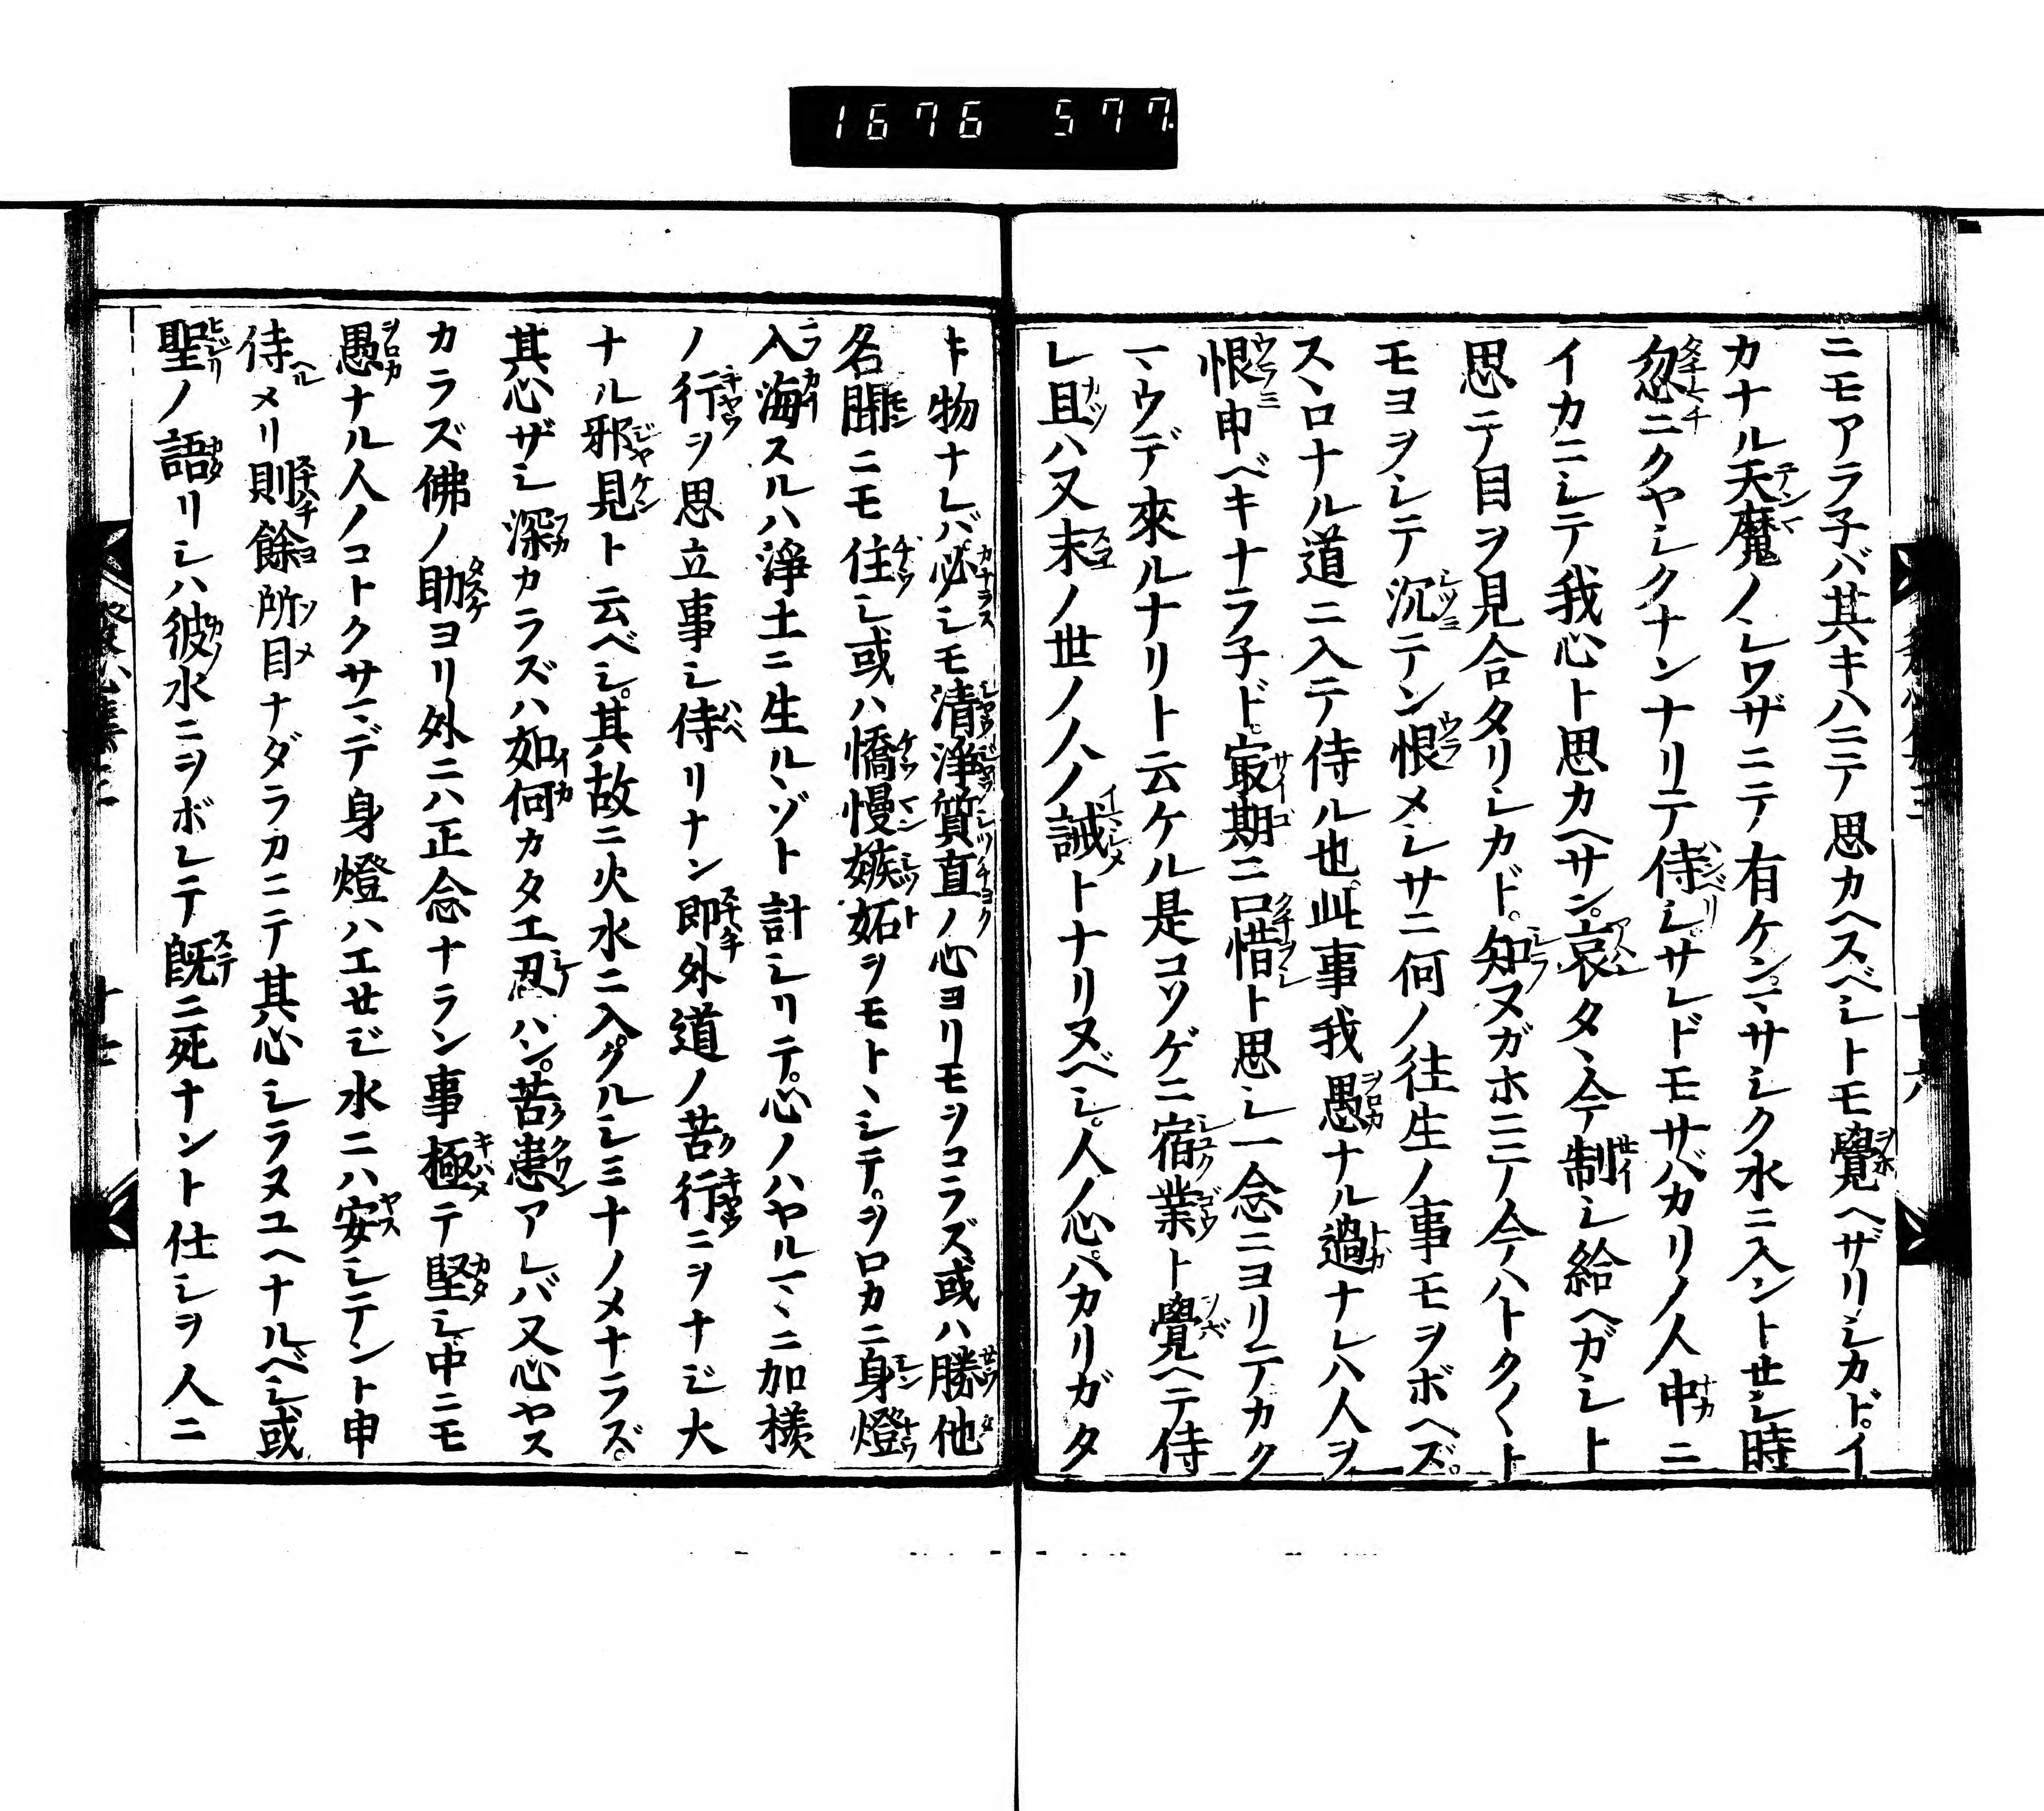 1676 577.
ニモアラ子バ其キハニテ思カヘスベシトモ覺ヘザリシカド。イ
カナル天魔ノシワザニテ有ケン。マサシク水ニ入ントセシ時
忽ニクヤシクナンナリテ侍シ。サレドモサバカリノ人中ニ
イカニシテ我心ト思カヘサン。哀タヽ今制シ給ヘガシト
思テ目ヲ見合タリシカド。知ヌガホニテ今ハトク〱ト
モヨヲシテ沉テン恨メシサニ何ノ往生ノ事モヲボヘズ。
スヽロナル道ニ入テ侍ル也。此事我愚ナル過ナレハ人ヲ
恨申ベキナラ子ド。㝡期ニ口惜ト思シ一念ニヨリテカク
マヽウデ來ルナリト云ケル是コソゲニ宿業ト覺ヘテ侍
レ且ハ又末ノ世ノ人ノ誡トナリヌベシ。人ノ心ハカリガタ
キ物ナレバ。必シモ清淨質直ノ心ヨリモヲコラズ。或ハ勝他
名聞ニモ住シ或ハ憍慢嫉妬ヲモトヽシテ。ヲロカニ身燈
入海スルハ淨土ニ生ルヽゾト計シリテ。心ノハヤルマヽニ加樣
ノ行ヲ思立事シ侍リナン即外道ノ苦行ニヲナジ大
ナル邪見ト云ベシ。其故ニ火水ニ入クルシミナノメナラズ。
其心ザシ深カラズハ如何カタエ忍ハン。苦患アレバ又心ヤス
カラズ佛ノ助ヨリ外ニハ正念ナラン事極テ堅シ中ニモ
愚ナル人ノコトクサマデ身燈ハエセジ水ニハ安シテント申
侍メリ則餘所目ナダラカニテ其心シラヌユヘナルベシ或
聖ノ語リシハ彼水ニヲボレテ既ニ死ナント仕シヲ人ニ